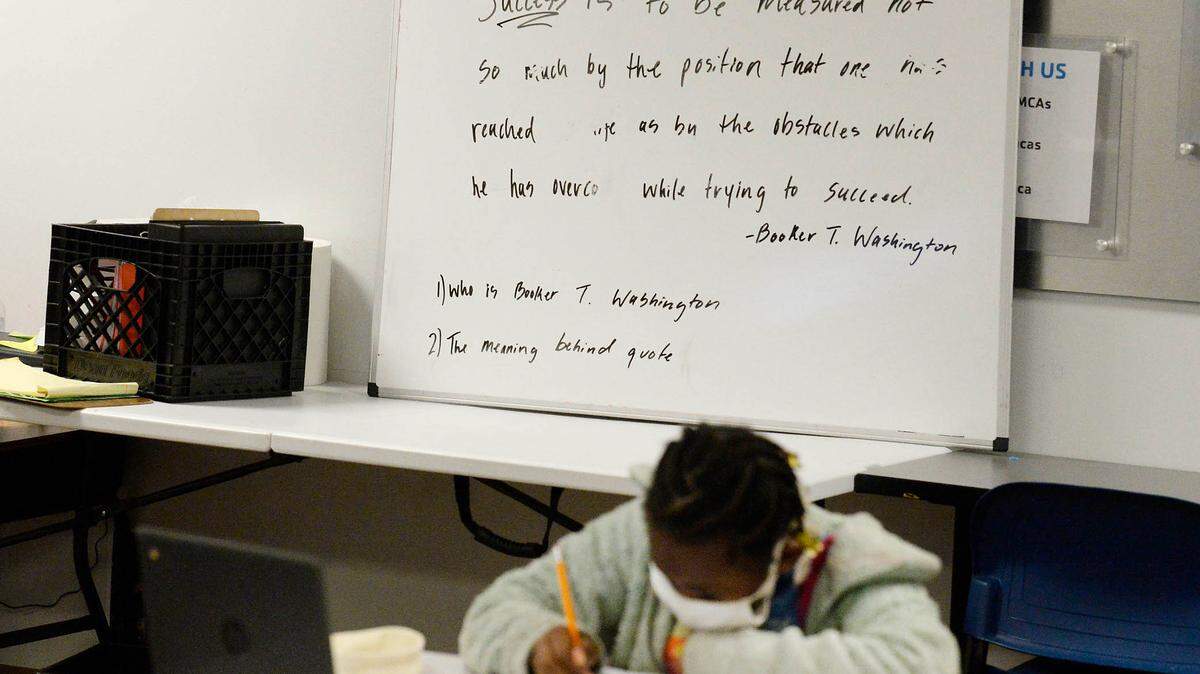 Success is to be measured not
so much by the position that one
reached as by the obstacles which
he has overco while trying to succeed.
-Booker T. Washington
1) Who is Booker T. Washington
2) The meaning behind quote
H US
MCAs
cas
ca